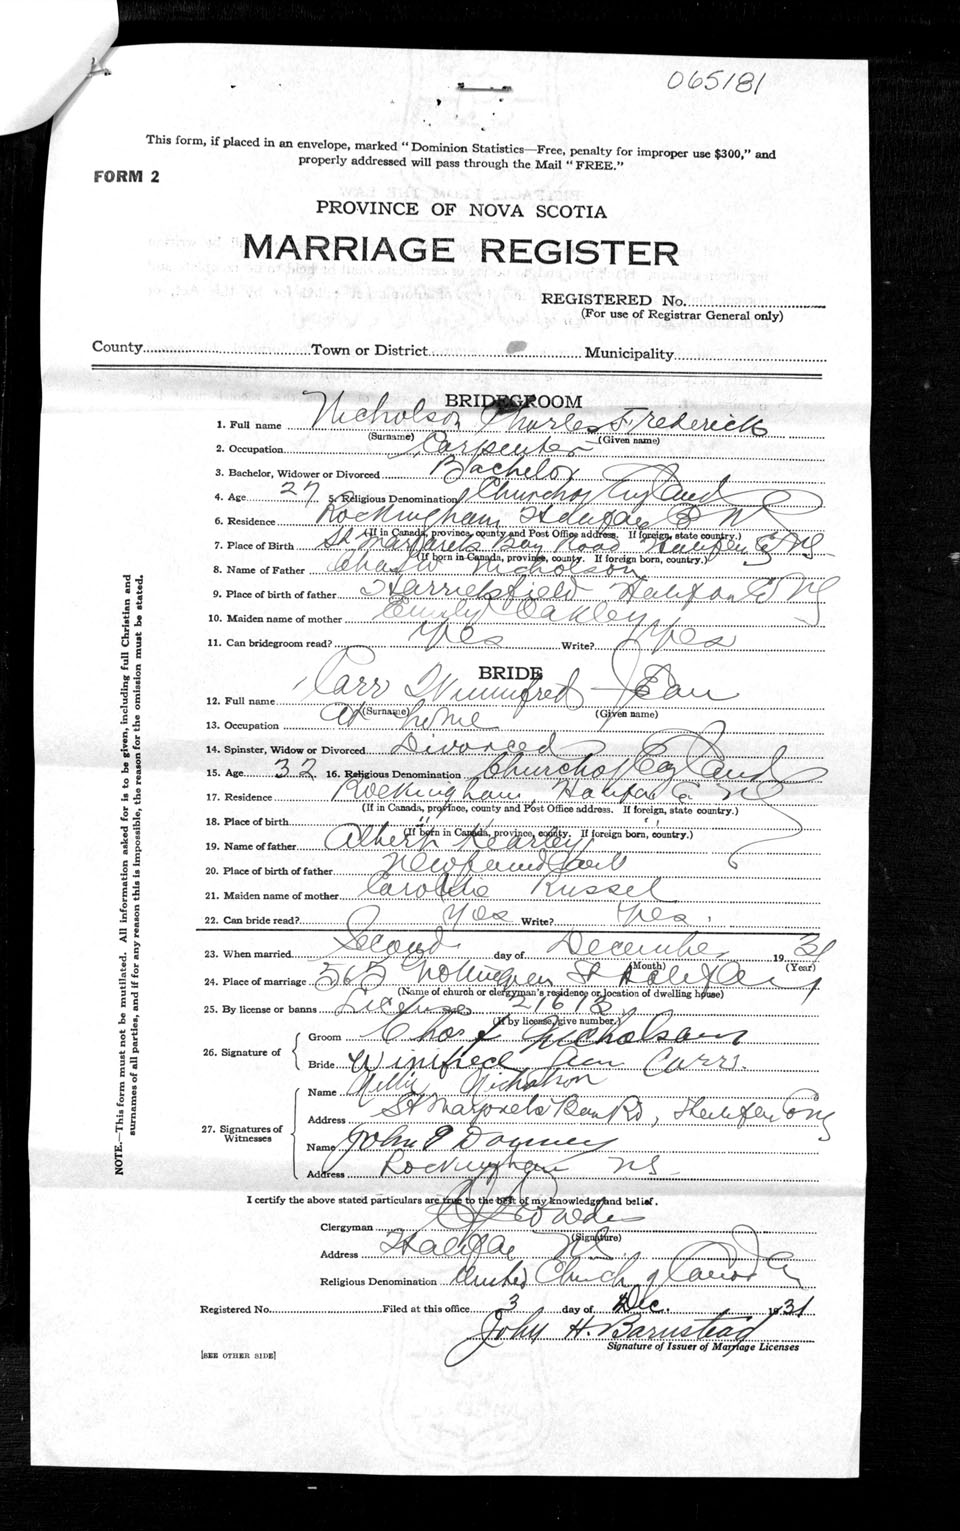 065181
This form, if placed in an envelope, marked "Dominion Statistics—Free, penalty for improper use $300," and
properly addressed will pass through the Mail "FREE."
FORM 2
PROVINCE OF NOVA SCOTIA
MARRIAGE REGISTER
REGISTERED No.
(For use of Registrar General only)
County Town or District Municipality
BRIDEGROOM
1. Full name Nicholson Charles Frederick
(Surname) (Given name)
2. Occupation Carpenter
3. Bachelor, Widower or Divorced Bachelor
4. Age 27 5. Religious Denomination Church of England
6. Residence Rockingham Halifax Co NS
(If in Canada, province, county and Post Office address. If foreign, state country.)
7. Place of Birth St Margarets Bay Road Halifax Co NS
(If born in Canada, province, county. If foreign born, country.)
8. Name of Father Nicholson
9. Place of birth of father Harrietsfield Halifax Co NS
10. Maiden name of mother Emily Oakley
11. Can bridegroom read? Yes Write? Yes
BRIDE
12. Full name Carr Winnifred Jean
(Surname) (Given name)
13. Occupation At home
14. Spinster, Widow or Divorced Divorced
15. Age 32 16. Religious Denomination Church of England
17. Residence Rockingham, Halifax Co NS
(If in Canada, province, county and Post Office address. If foreign, state country.)
18. Place of birth " " "
(If born in Canada, province, county. If foreign born, country.)
19. Name of father Albert Kearley
20. Place of birth of father Newfoundland
21. Maiden name of mother Caroline Russel
22. Can bride read? Yes Write? Yes.
23. When married Second day of December 1931
(Month) (Year)
24. Place of marriage 565 St Halifax
(Name of church or clergyman's residence or location of dwelling house)
25. By license or banns License 21618
(If by license, give number.)
26. Signature of
Groom Chas F Nicholson
Bride Winifred Jean Carr.
27. Signatures of
Witnesses
Name Nellie Nicholson
Address St Margarets Bay Rd, Halifax Co NS
Name John Downey
Address Rockingham NS
I certify the above stated particulars are true to the best of my knowledge and belief.
Clergyman
(Signature)
Address Halifax NS
Religious Denomination United Church of Canada
Registered No. Filed at this office 3 day of Dec. 1931
John H. Barnstead
Signature of Issuer of Marriage Licenses
[SEE OTHER SIDE]
NOTE.—This form must not be mutilated. All information asked for is to be given, including full Christian and
surnames of all parties, and if for any reason this is impossible, the reason for the omission must be stated.